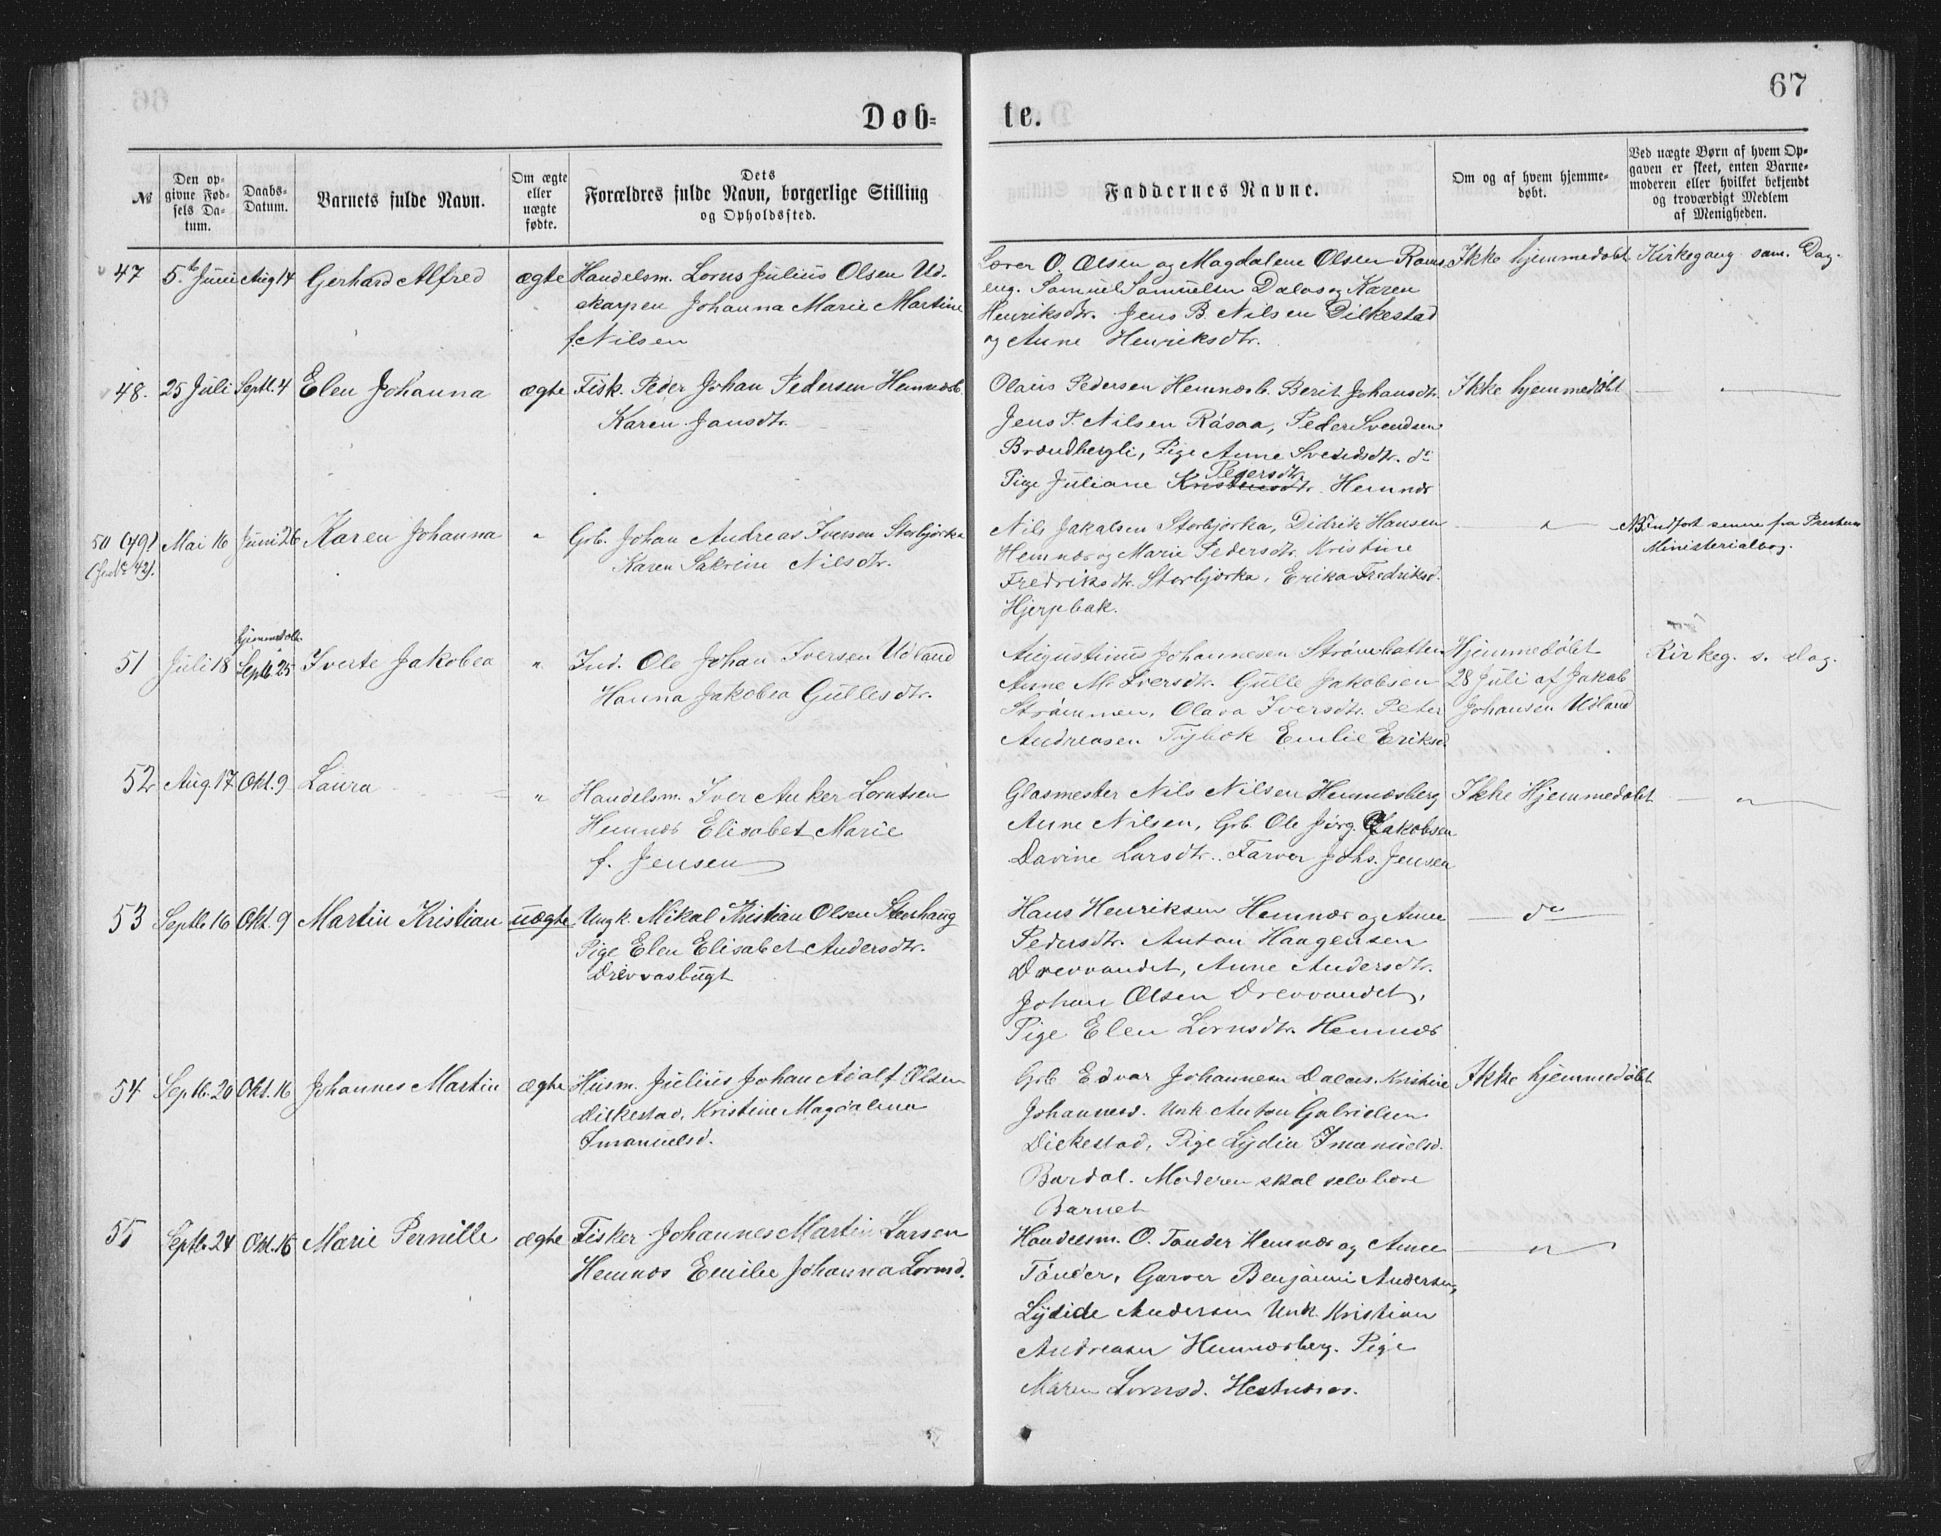 67
Døb= te.
№
Den op-
givne Fød-
sels Da-
tum.
Daabs-
Datum.
Barnets fulde Navn.
Om ægte
eller
uægte
fødte.
Dets
Forældres fulde Navn, borgerlige Stilling
og Opholdssted.
Faddernes Navne.
Om og af hvem hjemme-
døbt.
Ved uægte Børn af hvem Op-
gaven er skeet, enten Barne-
moderen eller hvilket bekjendt
og troværdigt Medlem
af Menigheden.
47 5te Juni Aug 14 Gerhard Alfred ægte Handelsm. Lorns Julius Olsen Ud-
skarpen Johanna Marie Martine
f. Nilsen
Lærer O. Olsen og Magdalene Olsen Rans
eng. Samuel Samuelsen Dalos og Karen
Henriksdtr. Jens B. Nilsen Dilkestad
og Anne Henriksdtr.
Ikke hjemmedøbt Kirkegang sam. Dag.
48. 25 Juli Septb. 4 Elen Johanna ægte Fisk. Peder Johan Pedersen Hemnæsb.
Karen Jansdtr.
Olaus Pedersen Hemnæsb. Berit Johansdtr.
Jens P. Nilsen Råsaa, Peder Svendsen
Brændbergli, Pige Anne Svendsdtr. do
Pedersdtr.
Pige Juliane Hemnæs
Ikke hjemmedøbt
50 (49) Mai 16 Juni 26 Karen Johanna " Grb. Johan Andreas Iversen Storbjørka
Karen Sakrine Nilsdtr.
Nils Jakobsen Storbjørka, Didrik Hansen
Hemnæs og Marie Pedersdtr. Kristine
Fredriksdtr. Storbjørka, Erika Fredriksd.
Hjerpbak.
"
NB Indført senere fra Prestens
Ministerialbog.
hjemmedøbt
51 Juli 18 Septb 25 Iverte Jakobea " Ind. Ole Johan Iversen Udland
Hanna Jakobea Gullesdtr.
Augustinus Johannesen Strømhatten
Anne M. Iversdtr. Gulle Jakobsen
Strømmen, Olava Iversdtr. Peter
Andreasen Tybæk Emelie Eriksd.
Hjemmedøbt
28 Juli af Jakob
Johansen Udland
Kirkeg. s. dag.
52 Aug. 17 Okt. 9 Laura " Handelsm. Iver Anker Lorntsen
Hemnæs Elisabet Marie
f. Jensen
Glasmester Nils Nilsen Hemnæsberg
Anne Nilsen, Grb. Ole Jørg. Jakobsen
Davine Larsdtr. Farver Johs. Jensen
Ikke Hjemmedøbt "
53 Septb 16 Okt. 9 Martin Kristian uægte Ungk. Mikal Kristian Olsen Stenhaug
Pige Elen Elisabet Andersdtr.
Drevvasbugt
Hans Henriksen Hemnæs og Anne
Pedersdtr. Anton Haagensen
Drevvandet, Anne Andersdtr.
Johan Olsen Drevvandet,
Pige Elen Lornsdtr. Hemnæs
do
54 Septb. 20 Okt. 16 Johannes Martin ægte Husm. Julius Johan Adolf Olsen
Dilkestad, Kristine Magdalena
Imanuelsd.
Grb Edvar Johannesen Dalos. Kristine
Johannesd. Unk. Anton Gabrielsen
Dilkestad, Pige Lydia Imanuelsd.
Bardal. Moderen skal selv bære
Barnet
Ikke hjemmedøbt
55 Septb. 24 Okt. 16 Marie Pernille ægte Fisker Johannes Martin Larsen
Hemnæs Emilie Johanna Lornsd.
Handelsm. O. Tønder Hemnæs og Anne
Tønder, Garver Benjamin Andersen,
Lydide Andersen Unk. Kristian
Andreasen Hemnæsberg. Pige
Maren Lornsd. Hestnæss.
"